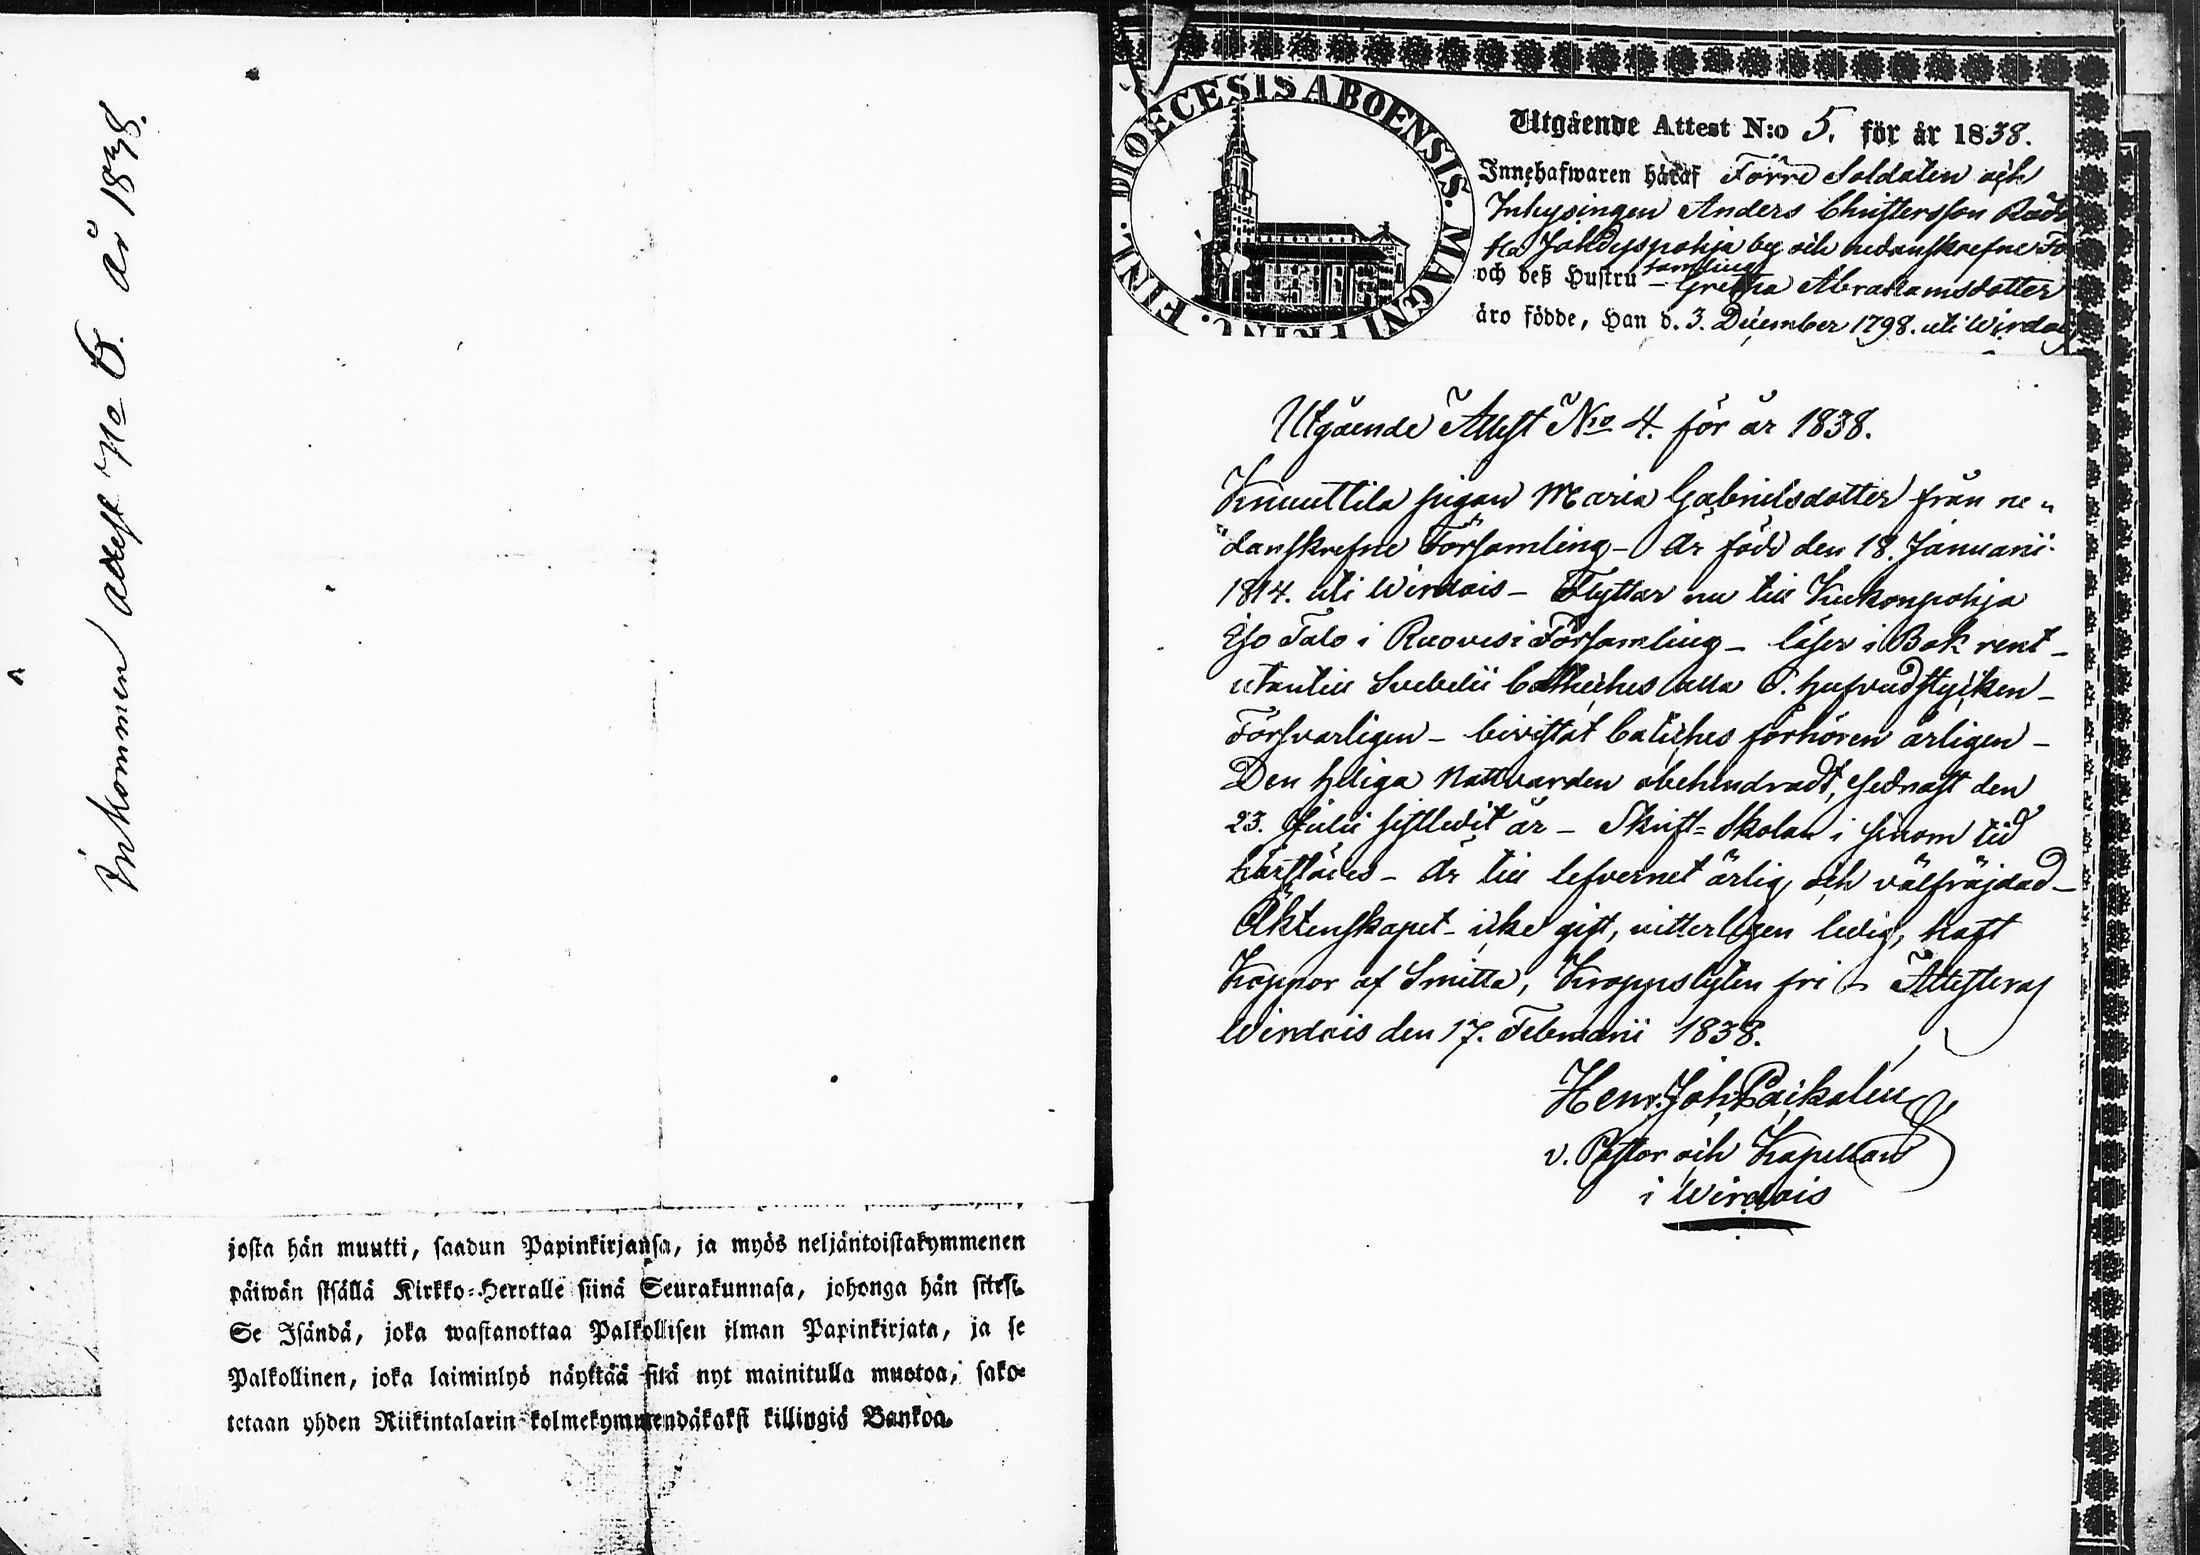 Inkommen attest No 6. År 1838.
josta hän muutti, saadun Papinkirjansa, ja myös neljäntoistakymmenen
päiwän sisällä Kirkko-Herralle siinä Seurakunnasa, johonga hän siirsi.
Se Isändä, joka wastanottaa Palkollisen ilman Papinkirjata, ja se
Palkollinen, joka laiminlyö näyttää sitä nyt mainitulla muotoa, sako-
tetaan yhden Riikintalarin kolmekymmendäkaksi killingiä Bankoa.
FINL. DIOECESIS ABOENSIS. MAGNI PRINC.
Utgående Attest N:o 5. för år 1838.
Innehafwaren häraf Förre Soldaten och
Inhysingen Anders Christersson
Jähdyspohja by och nedanskrefne
samling
och deß Hustru – Gretha Abrahamsdotter
äro födde, Han d. 3. December 1798. uti Wirdois
Utgående Attest No 4. för år 1838.
Knuuttila pigan Maria Gabrielsdotter från ne„
„danskrefne Församling – Är född den 18. Januarii
1814. uti Wirdois – Flyttar nu till Kukonpohja
Iso Talo i Ruovesi Församling – läser i Bok rent –
utantill Svebelii Catheches alla 5. Hufvudstycken –
Försvarligen – bivistat Cateches förhören årligen –
Den Heliga Nattvarden obehindradt, sednast den
23. Julii sistledit år – Skrift-Skolan i sinom tid
– Är till lefvernet ärlig och välfräjdad –
Äktenskapet – icke gift, vitterligen ledig, haft
Koppor af Smitta, Kroppslyten fri – Attesteras
Wirdois den 17. Februarii 1838.
Henr. Joh.
v. Pastor och Kapellan
i Wirdois